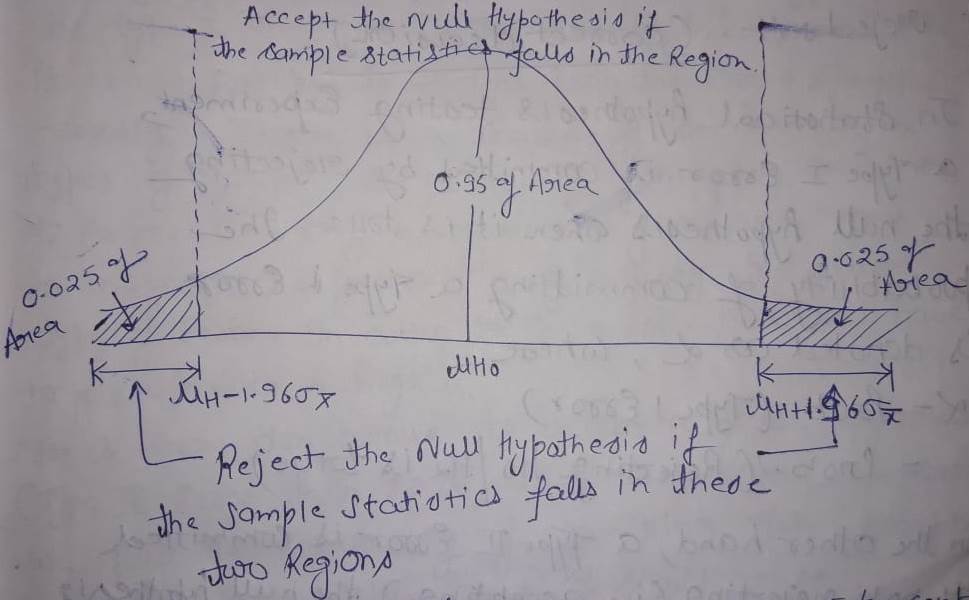 Accept the Null Hypothesis if
the sample statistics falls in the Region.
0.95 of Area
0.025 of
Area
0.025 of
Area
μH0
μH-1.96σx̄
μH+1.96σx̄
Reject the Null Hypothesis if
the sample statistics falls in these
two Regions